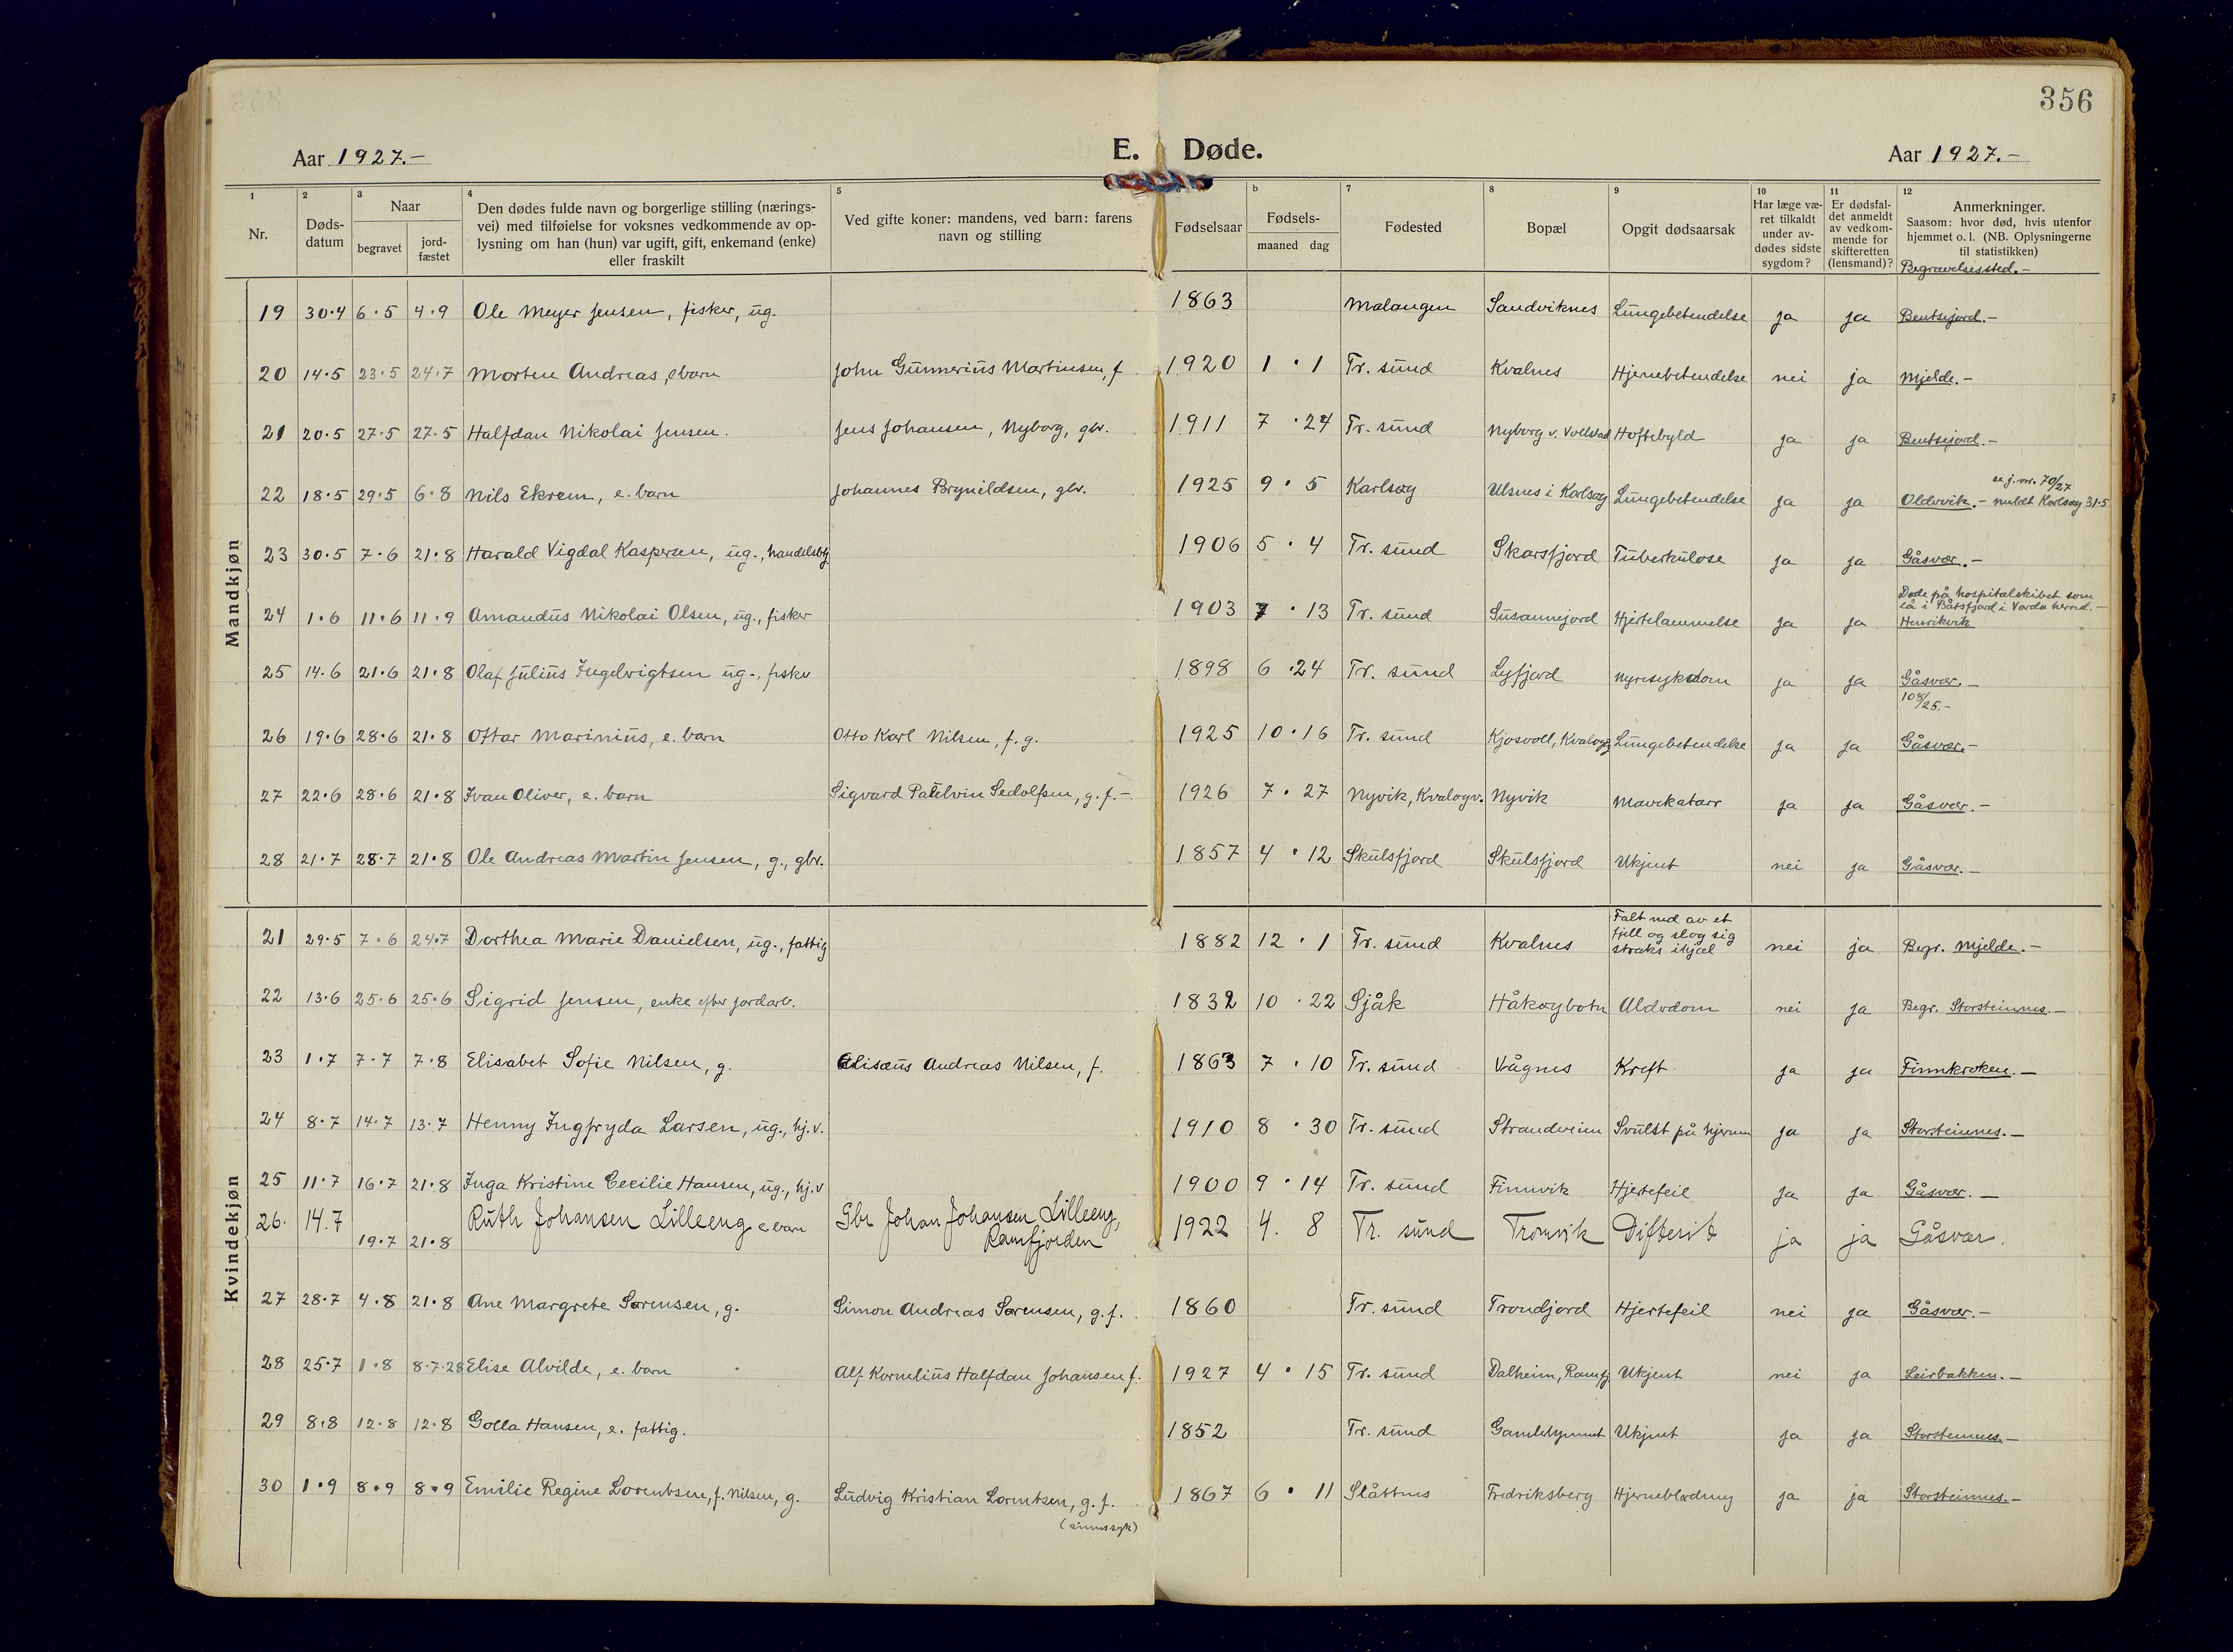 356
Aar 1927.- E. Døde. Aar 1927.-
1 2 3 4 5 6 b 7 8 9 10 11 12
Nr.
Døds-
datum
Naar
begravet
jord-
fæstet
Den dødes fulde navn og borgerlige stilling (nærings-
vei) med tilføielse for voksnes vedkommende av op-
lysning om han (hun) var ugift, gift, enkemand (enke)
eller fraskilt
Ved gifte koner: mandens, ved barn: farens
navn og stilling
Fødselsaar
Fødsels-
maaned dag
Fødested
Bopæl
Opgit dødsaarsak
Har læge væ-
ret tilkaldt
under av-
dødes sidste
sygdom?
Er dødsfal-
det anmeldt
av vedkom-
mende for
skifteretten
(lensmand)?
Anmerkninger.
Saasom: hvor død, hvis utenfor
hjemmet o. l. (NB. Oplysningerne
til statistikken)
Begravelsessted.-
Mandkjøn
19 30.4 6.5 4.9 Ole Meyer Jensen, fisker, ug. 1863 Malangen Sandviknes Lungebetendelse ja ja Bentsjord.-
20 14.5 23.5 24.7 Morten Andreas, e barn John Gunnerius Martinsen, f 1920 1.1 Tr. sund Kvalnes Hjernebetendelse nei ja Mjelde.-
21 20.5 27.5 27.5 Halfdan Nikolai Jensen. Jens Johansen, Nyborg, gbr. 1911 7.24 Tr. sund Nyborg v. Vollstad Hoftebyld ja ja Bentsjord.-
se j.nr. 70/27
22 18.5 29.5 6.8 Nils Ekrem, e. barn Johannes Brynildsen, gbr. 1925 9.5 Karlsøy Ulsnes i Karlsøy Lungebetendelse ja ja Oldervik.- meldt Karlsøy 31.5
23 30.5 7.6 21.8 Harald Vigdal Kaspersen, ug., handelsbtj. 1906 5.4 Tr. sund Skarsfjord Tuberkulose ja ja Gåsvær.-
Døde på hospitalskibet som
lå i Båtsfjord i Vardø herred.-
24 1.6 11.6 11.9 Amandus Nikolai Olsen, ug., fisker 1903 7.13 Tr. sund Susannejord Hjertelammelse ja ja Henrikvik
25 14.6 21.6 21.8 Olaf Julius Ingebrigtsen ug., fisker 1898 6.24 Tr. sund Lyfjord Nyresykdom ja ja Gåsvær.-
108/25.-
26 19.6 28.6 21.8 Ottar Marinius, e. barn Otto Karl Nilsen, f. g. 1925 10.16 Tr. sund Kjosvoll, Kvaløyv Lungebetendelse ja ja Gåsvær.-
27 22.6 28.6 21.8 Ivan Oliver, e. barn Sigvard Sedolfsen, g. f.- 1926 7.27 Nyvik, Kvaløyv. Nyvik Mavekatarr ja ja Gåsvær.-
28 21.7 28.7 21.8 Ole Andreas Martin Jensen, g., gbr. 1857 4.12 Skulsfjord Skulsfjord Ukjent nei ja Gåsvær.-
Kvindekjøn
Falt ned av et
fjell og slog sig
straks ihjæl
21 29.5 7.6 24.7 Dorthea Marie Danielsen, ug., fattig 1882 12.1 Tr. sund Kvalnes nei ja Begr. Mjelde.-
22 13.6 25.6 25.6 Sigrid Jensen, enke efter jordarb. 1832 10.22 Sjåk Håkøybotn Alderdom nei ja Begr. Storsteinnes.-
23 1.7 7.7 7.8 Elisabet Sofie Nilsen, g. Elisæus Andreas Nilsen, f. 1863 7.10 Tr. sund Vågnes Kreft ja ja Finnkroken.-
24 8.7 14.7 13.7 Henny Ingfryda Larsen, ug., hj.v. 1910 8.30 Tr. sund Strandheim Svulst på hjernen ja ja Storsteinnes.-
25 11.7 16.7 21.8 Inga Kristine Cecilie Hansen, ug., hj.v 1900 9.14 Tr. sund Finnvik Hjertefeil ja ja Gåsvær.-
26. 14.7 19.7 21.8 Ruth Johansen Lilleeng e barn Gbr Johan Johansen Lilleeng,
Ramfjorden
1922 4. 8 Tr. sund Tromvik Difterit ja ja Gåsvær.
27 28.7 4.8 21.8 Ane Margrete Sørensen, g. Simon Andreas Sørensen, g. f. 1860 Tr. sund Trondjord Hjertefeil nei ja Gåsvær.-
28 25.7 1.8 8.7.28 Elise Alvilde, e. barn Alf Kornelius Halfdan Johansen f. 1927 4.15 Tr. sund Dalheim, Ramfj Ukjent nei ja Leirbakken.-
29 8.8 12.8 12.8 Golla Hansen, e. fattig. 1852 Tr. sund Gamlehjemmet Ukjent ja ja Storsteinnes.-
30 1.9 8.9 8.9 Emilie Regine Lorentsen, f. Nilsen, g. Ludvig Kristian Lorentsen, g. f.
(sinnssyk)
1867 6.11 Slåttnes Fredriksberg Hjerneblødning ja ja Storsteinnes.-